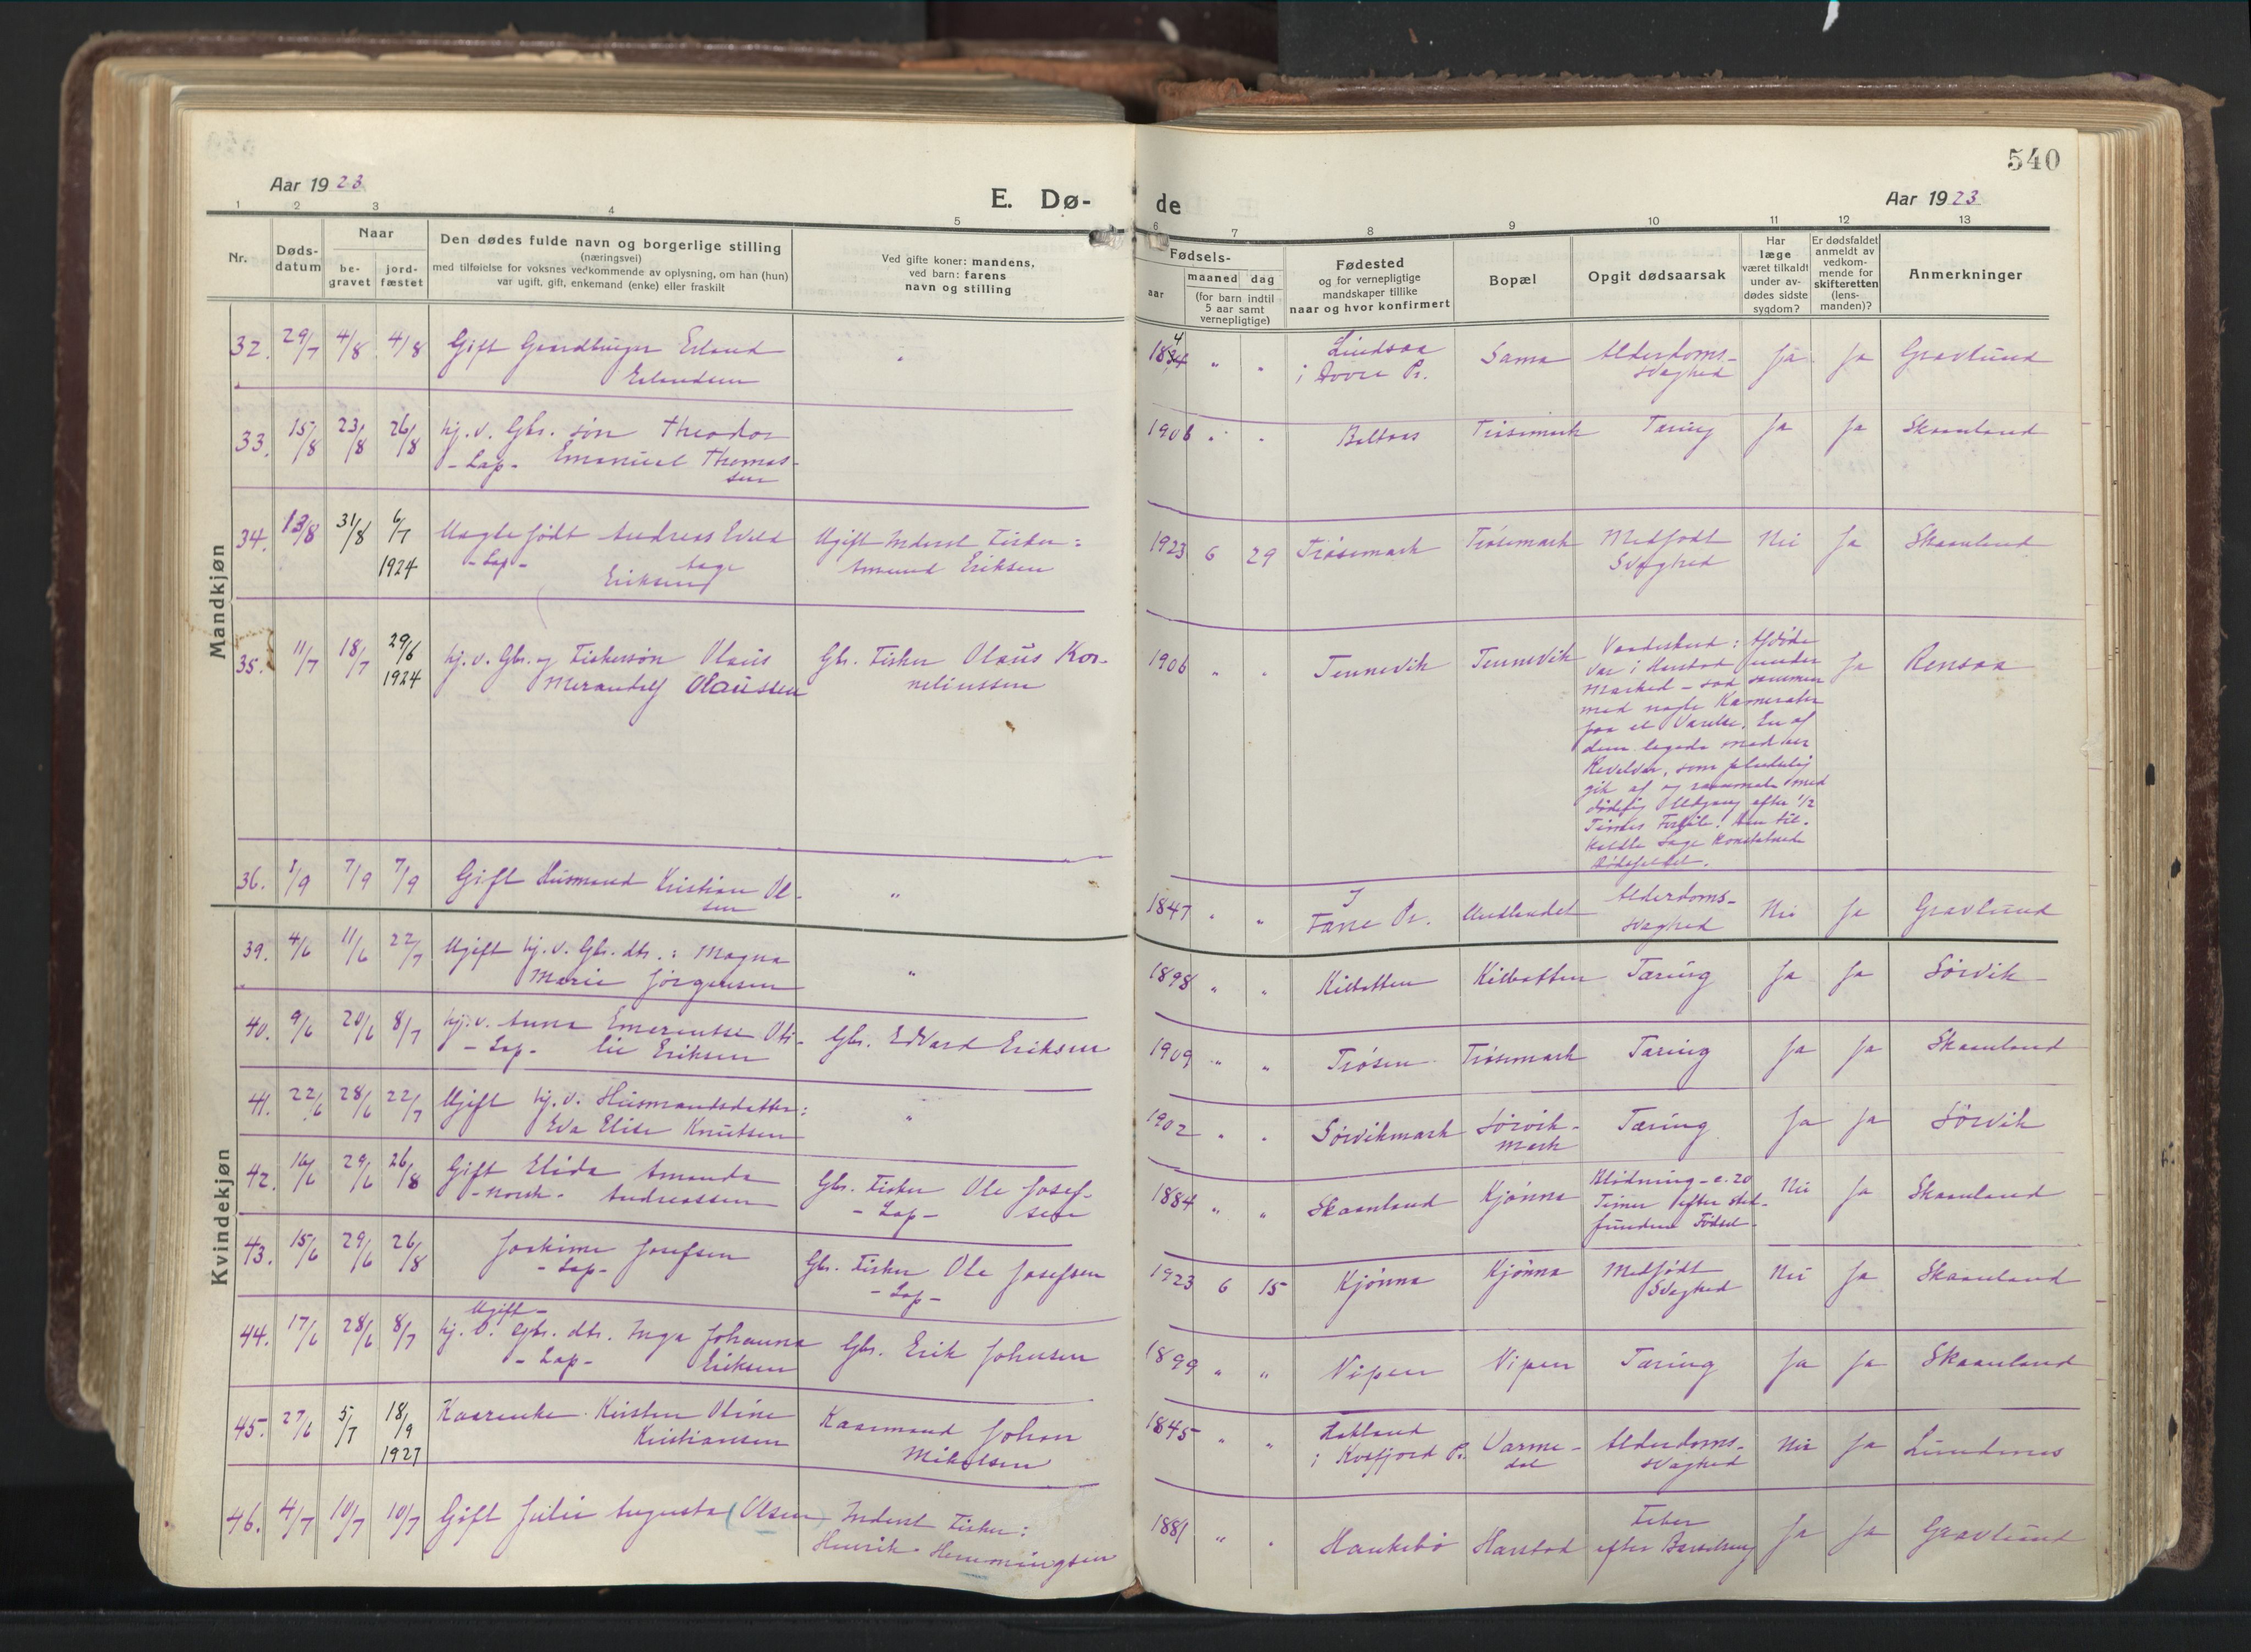 540
Aar 1923
E. Dø-
de
Aar 1923
1 2 3 4 5 6 7 8 9 10 11 12 13
Nr.
Døds-
datum
Naar
be-
gravet
jord-
fæstet
Den dødes fulde navn og borgerlige stilling
(næringsvei)
med tilføielse for voksnes vedkommende av oplysning, om han (hun)
var ugift, gift, enkemand (enke) eller fraskilt
Ved gifte koner: mandens,
ved barn: farens
navn og stilling
Fødsels-
aar
maaned dag
(for barn indtil
5 aar samt
vernepligtige)
Fødested
og for vernepligtige
mandskaper tillike
naar og hvor konfirmert
Bopæl
Opgit dødsaarsak
Har
læge
været tilkaldt
under av-
dødes sidste
sygdom?
Er dødsfaldet
anmeldt av
vedkom-
mende for
skifteretten
(lens-
manden)?
Anmerkninger
Mandkjøn
32. 29/7 4/8 4/8 Gift Gaardbruger Erland
Erlandsen
" 18 4 " " Lindsaa
i Dovre Pr. Sama Alderdoms-
svaghed Ja Ja Gravlund
33. 15/8 23/8 26/8 hj. v. Gbr. søn Theodor
- Lap - Emanuel Thomas-
sen
1906 " " Boltaas Trøsemark Tæring Ja Ja Skaanland
34. 13/8 31/8 6/7
1924 Uægte født Andreas Evald
- Lap - Aage
Eriksen
Ugift Inderst Fisker:
Amund Eriksen
1923 6 29 Trøsemark Trøsemark Medfødt
Svaghed Nei Ja Skaanland
35. 11/7 18/7 29/6
1924 hj. v. Gbr. og Fiskersøn Olaus
Merandelf Olaussen
Gbr. Fisker Olaus Kor-
neliussen
1906 " " Tennevik Tennevik Vaadeskud: Afdøde
var i Harstad under
Marked - sad sammen
med nogle Kamerater
paa et Værelse. En af
dem legede med en
Revolver, som pludselig
gik af og rammede med
dødelig Udgang efter 1/2
Times Forløb. Den til-
kaldte Læge konstaterede
Dødsfaldet.
Ja Rensaa
36. 1/9 7/9 7/9 Gift Husmand Kristian Ol-
sen
" 1847 " " I
Tane Pr. Aunslandet Alderdoms-
svaghed Nei Ja Gravlund
Kvindekjøn
39. 4/6 11/6 22/7 Ugift hj. v. Gbr. dtr.: Magna
Marie Jørgensen
" 1898 " " Kilbotten Kilbotten Tæring Ja Ja Sørvik
40. 9/6 20/6 8/7 hj. v. Anna Emerentse Oti-
- Lap - lie Eriksen
Gbr. Edvard Eriksen
1909 " " Trøsen Trøsemark Tæring Ja Ja Skaanland
41. 22/6 28/6 22/7 Ugift hj. v. Husmandsdatter:
Eva Elise Knutsen
" 1902 " " Sørvikmark Sørvik-
mark Tæring Ja Ja Sørvik
42. 16/6 29/6 26/8 Gift Elida Amanda
- norsk - Andreassen
Gbr. Fisker Ole Josef-
- Lap - sen
1884 " " Skaanland Kjønna Blødning - c. 20
Timer efter sted-
funden Fødsel. Nei Ja Skaanland
43. 15/6 29/6 26/8 Joakime Josefsen
- Lap -
Gbr. Fisker Ole Josefsen
- Lap -
1923 6 15 Kjønna Kjønna Medfødt
Svaghed Nei Ja Skaanland
44. 17/6 28/6 8/7 Ugift -
hj. v. Gbr. dtr. Inga Johanna
- Lap - Eriksen
Gbr. Erik Johnsen
1899 " " Nipen Nipen Tæring Ja Ja Skaanland
45. 27/6 5/7 18/9
1927 Kaarenke. Kirsten Oline
Kristiansen
Kaarmand Johan
Mikalsen
1845 " " Hakland
i Kvæfjord Pr. Varme-
dal Alderdoms-
svaghed Nei Ja Lundenes
46. 4/7 10/7 10/7 Gift Julie Augusta (Olsen)
Inderst Fisker:
Henrik Hemmingsen
1881 " " Haukebø Harstad Feber
efter Barselseng Ja Ja Gravlund